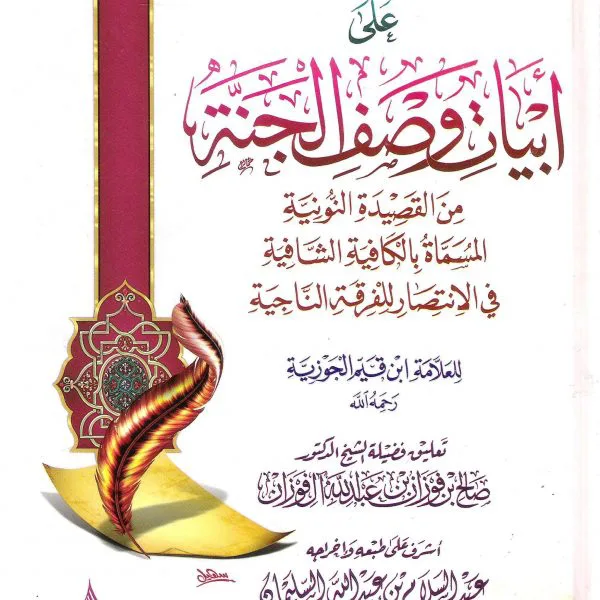 على
أبيات وصف الجنة
من القصيدة النونية
المسماة بالكافية الشافية
في الانتصار للفرقة الناجية
للعلامة ابن قيم الجوزية
رحمه الله
تعليق فضيلة الشيخ الدكتور
صالح بن فوزان بن عبد الله آل فوزان
أشرف على طبعه وإخراجه
عبد السلام بن عبد الله السليمان